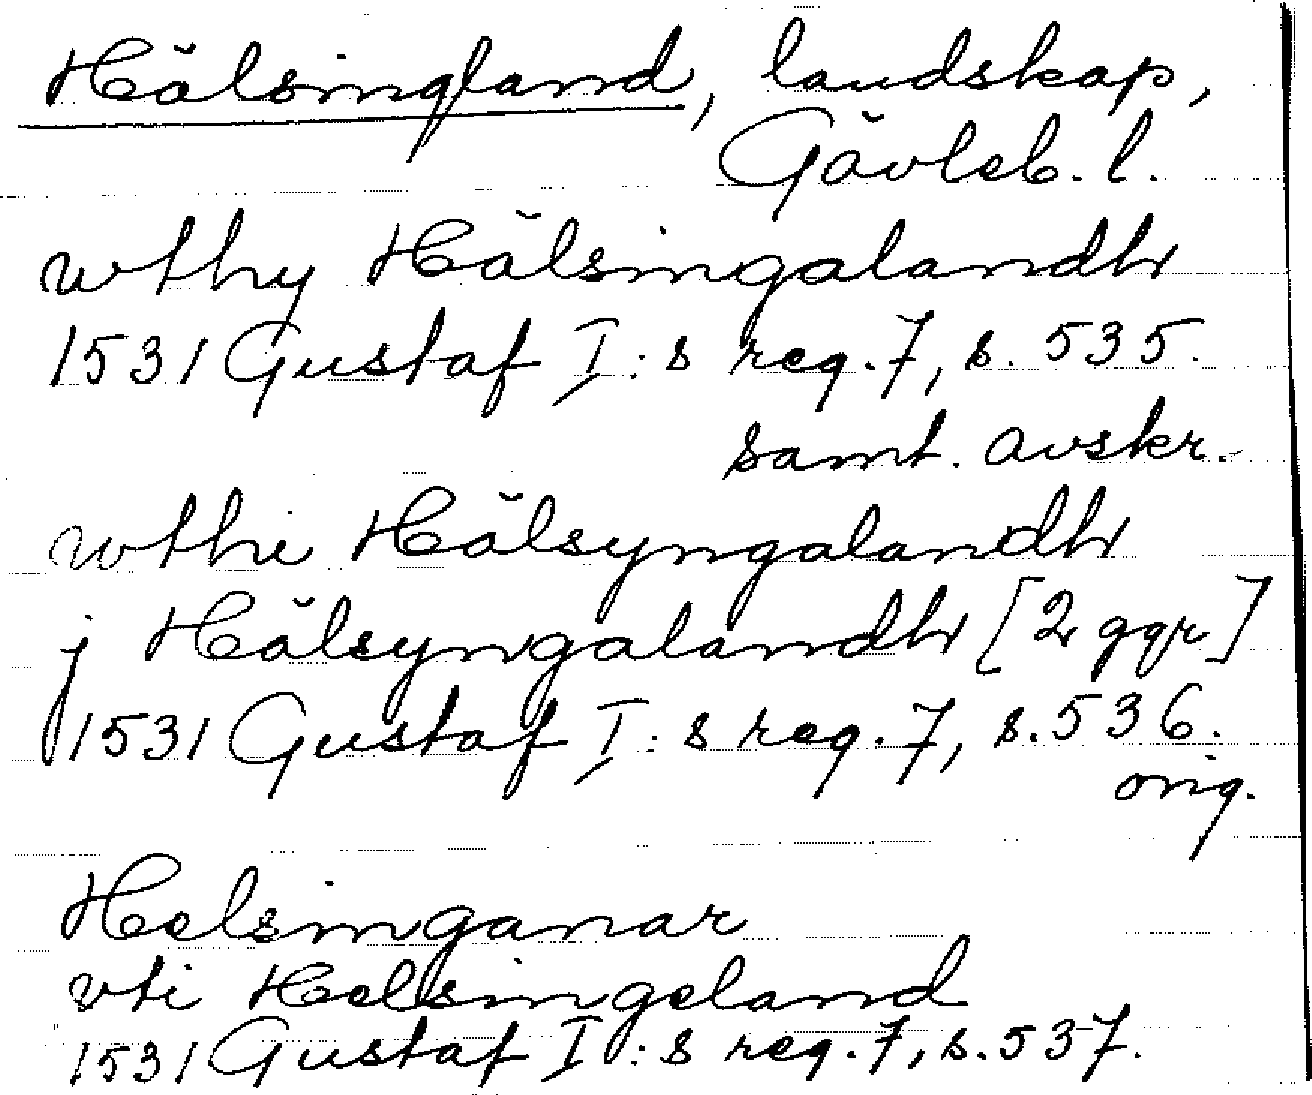 Hälsingland, landskap,
Gävleb. l.
wthy Hälsingalandh
1531 Gustaf I:s reg. 7, s. 535.
samt. avskr.
wthi Hälsyngalandh
j Hälsyngalandh [2 ggr]
1531 Gustaf I:s reg. 7, s. 536.
orig.
Helsinganar
vti Helsingeland
1531 Gustaf I:s reg. 7, s. 537.